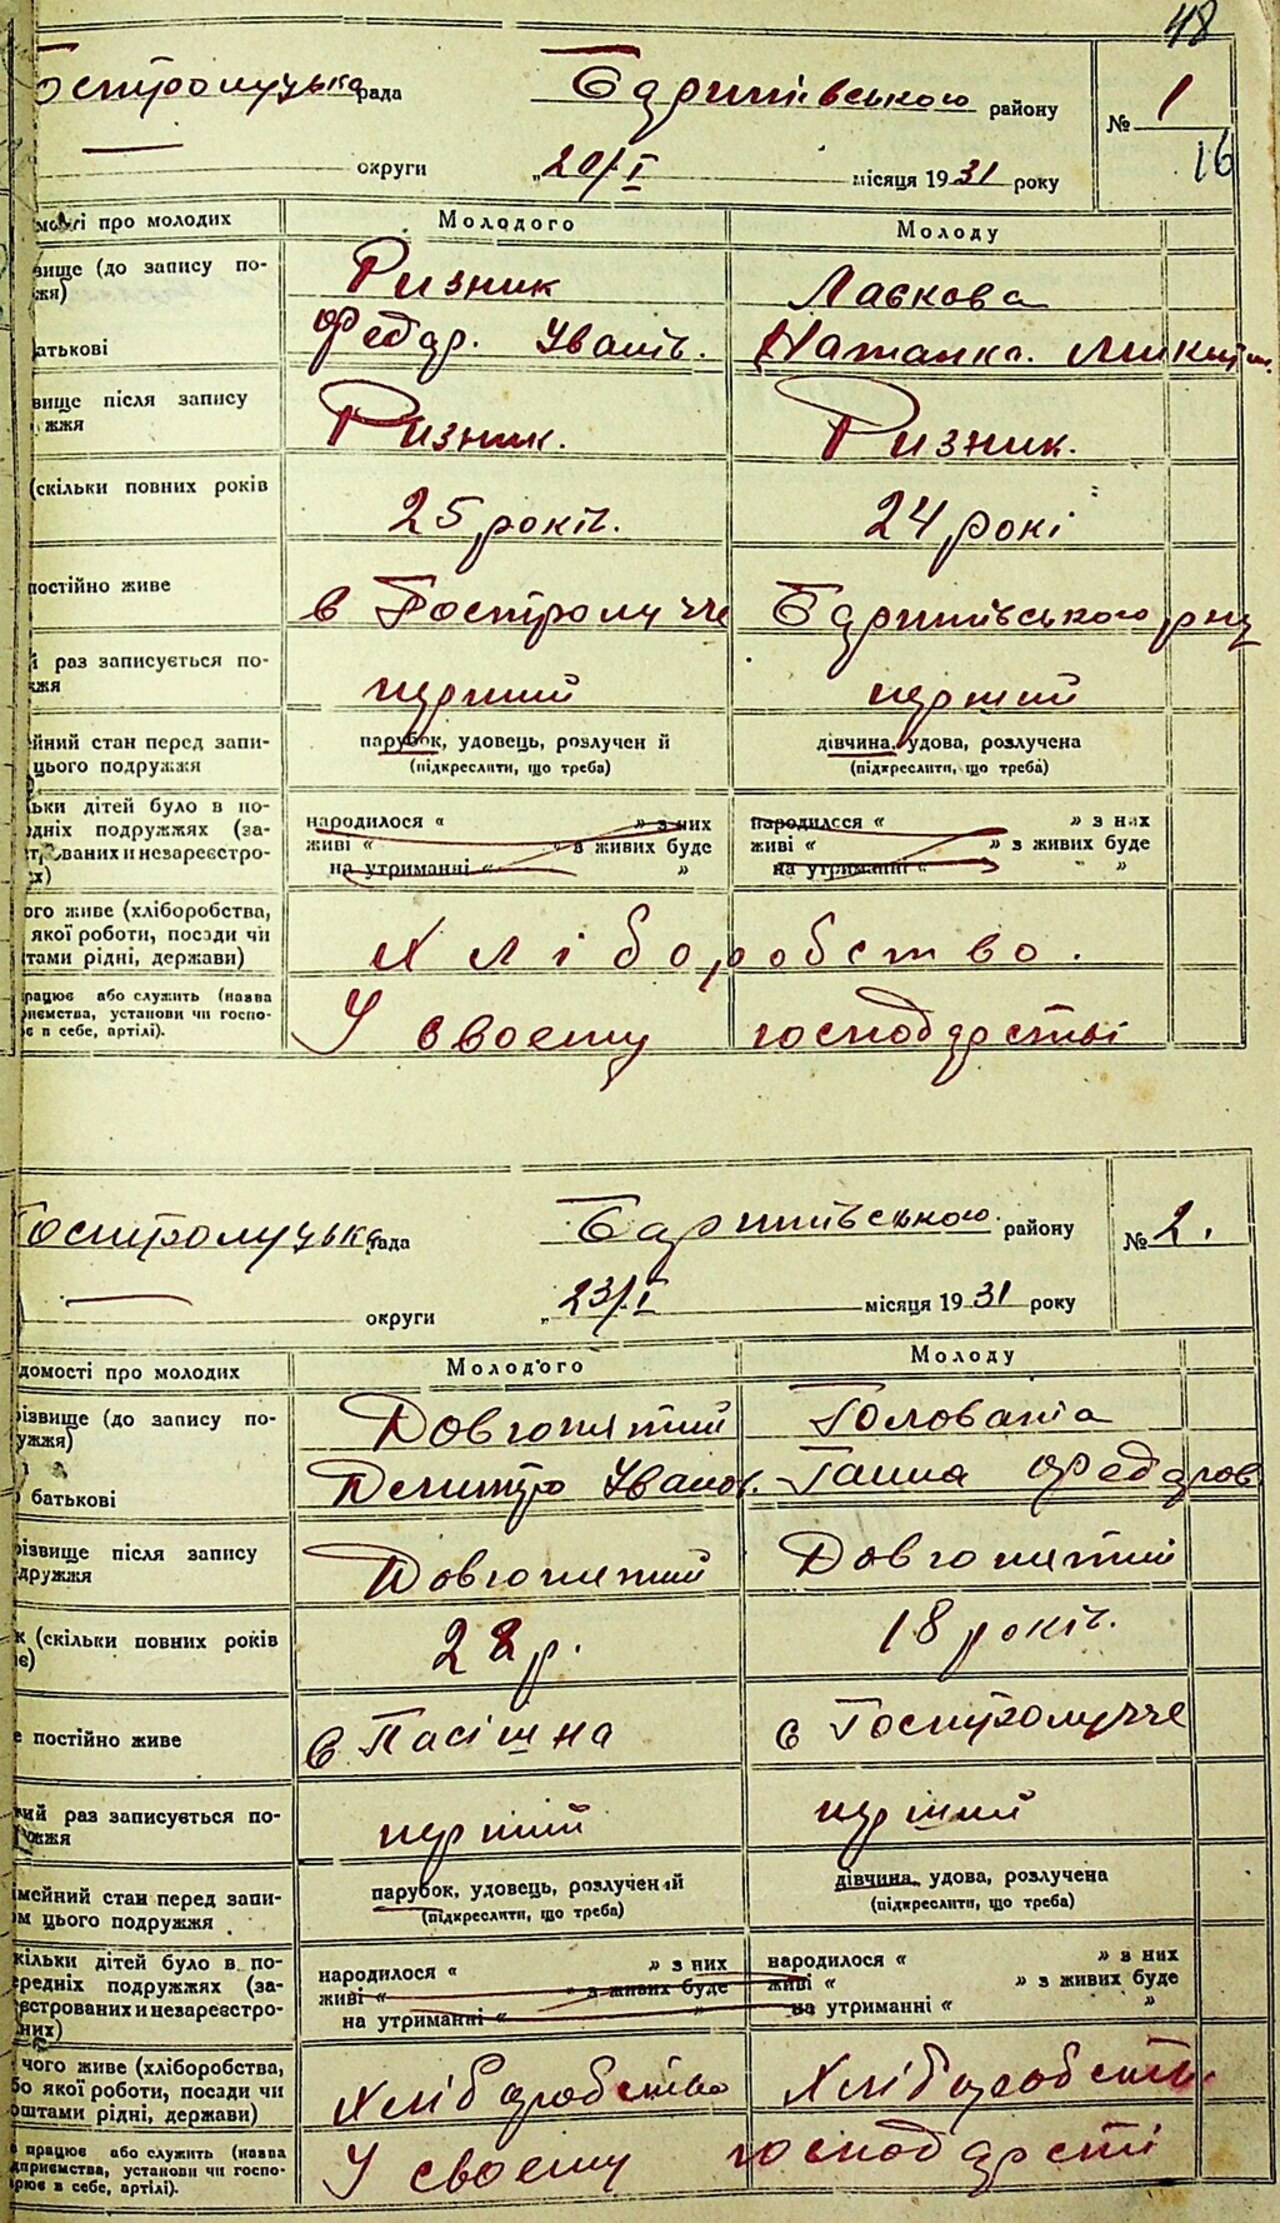 48
Гостролуцька рада Баришівського району № 1
16
округи „20/I місяця 1931 року
мості про молодих Молодого Молоду
вище (до запису по-
жя) Ризник Лаєкова
атькові Федор. Іванів. Наталка. Микит.
вище після запису
жжя Ризник. Ризник.
(скільки повних років
25 років. 24 рокі
постійно живе в Гостролучче Баришівського рну
й раз записується по-
жжя перший перший
йний стан перед запи-
цього подружжя
парубок, удовець, розлучен й дівчина, удова, розлучена
(підкреслити, що треба) (підкреслити, що треба)
ьки дітей було в по-
дніх подружжях (за-
трованих и незареєстро-
х)
народилося “ ” з них народилося “ ” з них
живі “ ” з живих буде живі “ ” з живих буде
на утриманні “ ” на утриманні “ ”
ого живе (хліборобства,
якої роботи, посади чи
тами рідні, держави) Хліборобство.
рацює або служить (назва
риємства, установи чи госпо-
є в себе, артілі). У своему господарстві
Гостролуцька рада Баришівського району № 2.
округи „23/I місяця 1931 року
домості про молодих Молодого Молоду
різвище (до запису по-
ужжя) Довгопятий Голованіа
батькові Демитро Іванов. Ганна Федоров
різвище після запису
дружжя Довгопятий Довгопятий
к (скільки повних років
є) 22 р. 18 років.
е постійно живе в Пасішна в Гостролучче
кий раз записується по-
ужжя перший перший
імейний стан перед запи-
ом цього подружжя
парубок, удовець, розлучений дівчина, удова, розлучена
(підкреслити, що треба) (підкреслити, що треба)
кільки дітей було в по-
ередніх подружжях (за-
еєстрованих и незареєстро-
них)
народилося “ ” з них народилося “ ” з них
живі “ ” з живих буде живі “ ” з живих буде
на утриманні “ ” на утриманні “ ”
чого живе (хліборобства,
бо якої роботи, посади чи
оштами рідні, держави) Хліборобство Хліборобств.
працює або служить (назва
дприємства, установи чи госпо-
арює в себе, артілі). У своему господарсті